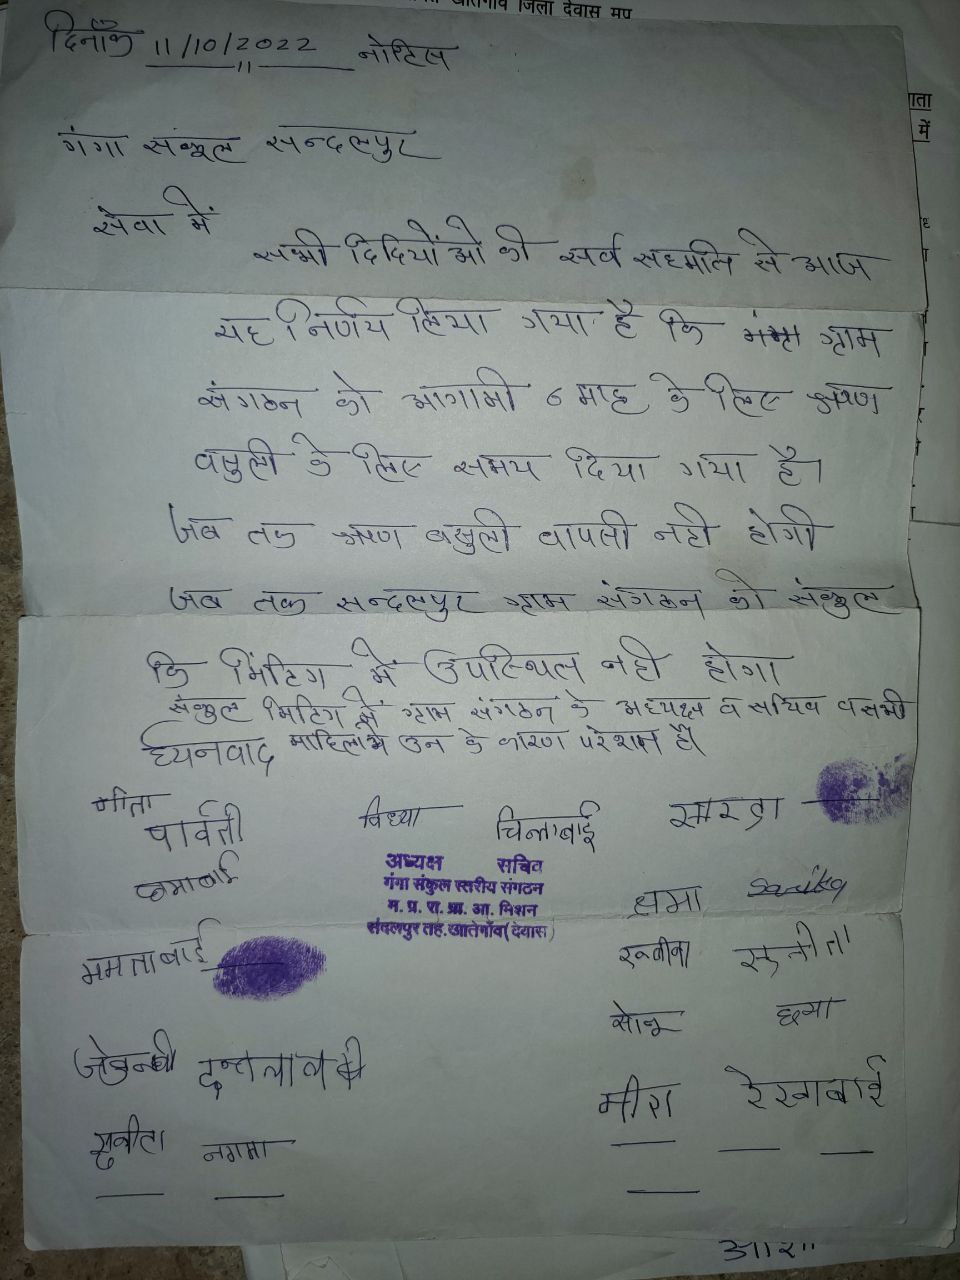 खातेगांव जिला देवास मप्र
दिनाँक 11/10/2022 नोटिस
गाता
में
गंगा संकुल सन्दलपुर
सेवा में
सभी दिदियोंओ की सर्व सहमति से आज
यह निर्णय लिया गया है कि ग्राम
संगठन को आगामी 6 माह के लिए ऋण
वसुली के लिए समय दिया गया है।
जब तक ऋण वसुली वापसी नही होगी
जब तक सन्दलपुर ग्राम संगठन को संकुल
कि मिंटिग में उपस्थित नही होगा
संकुल मिटिग में ग्राम संगठन के अध्यक्ष व सचिव व सभी
ध्यनवाद माहिलाऐ उन के कारण परेशान है।
गीता
पार्वती विध्या चिन्ताबाई सारदा
अध्यक्ष सचिव
गंगा संकुल स्तरीय संगठन
म. प्र. रा. ग्रा. आ. मिशन
संदलपुर तह. खातेगाँव (देवास)
क्षमा Sarika
ममताबाई सुनीता
सोनू छाया
मीरा रेखाबाई
सुनीता नगमा